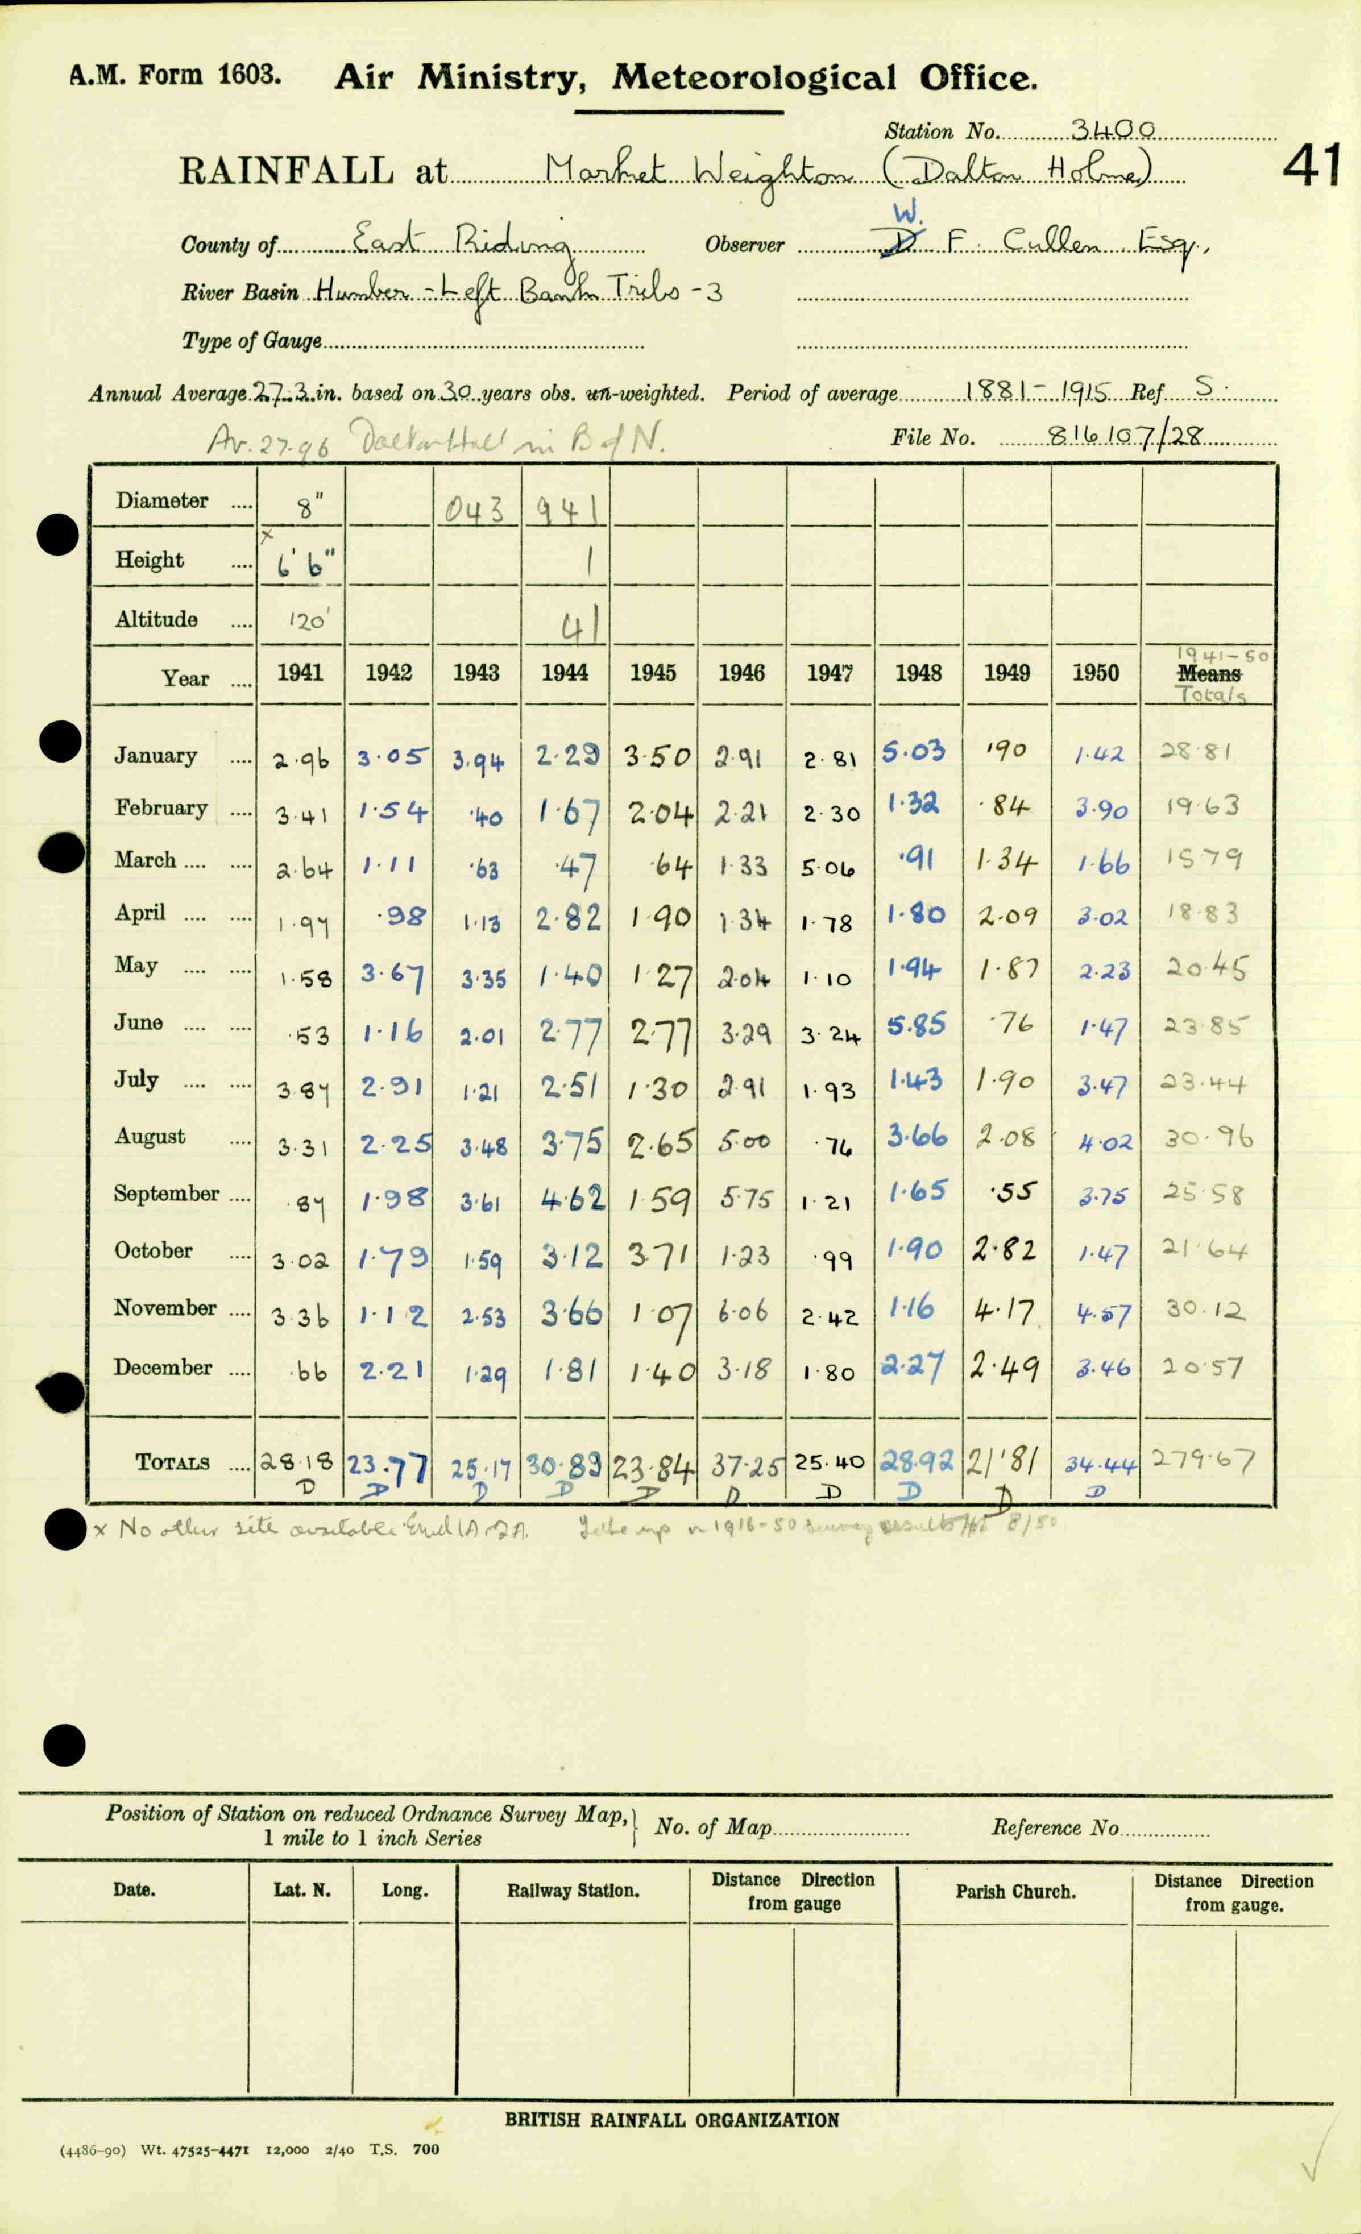 A.M. Form 1603. Air Ministry, Meteorological Office.
Station No. 3400
RAINFALL at Market Weighton (Dalton Holme) 41
W.
County of East Riding Observer D F. Cullen Esq.,
River Basin Humber - Left Bank Tribs - 3
Type of Gauge
Annual Average 27.3 in. based on 30 years obs. un-weighted. Period of average 1881 - 1915 Ref S.
Av. 27.96 Dalton Hall in B of N. File No. 816107/28
Diameter .... 8" 043 941
x
Height .... 6' 6" 1
Altitude .... 120' 41
1941-50
Year .... 1941 1942 1943 1944 1945 1946 1947 1948 1949 1950 Means
Totals
January .... 2.96 3.05 3.94 2.29 3.50 2.91 2.81 5.03 .90 1.42 28.81
February .... 3.41 1.54 .40 1.67 2.04 2.21 2.30 1.32 .84 3.90 19.63
March .... .... 2.64 1.11 .63 .47 .64 1.33 5.06 .91 1.34 1.66 15.79
April .... .... 1.97 .98 1.13 2.82 1.90 1.34 1.78 1.80 2.09 3.02 18.83
May .... .... 1.58 3.67 3.35 1.40 1.27 2.04 1.10 1.94 1.87 2.23 20.45
June .... .... .53 1.16 2.01 2.77 2.77 3.29 3.24 5.85 .76 1.47 23.85
July .... .... 3.87 2.91 1.21 2.51 1.30 2.91 1.93 1.43 1.90 3.47 23.44
August .... 3.31 2.25 3.48 3.75 2.65 5.00 .76 3.66 2.08 4.02 30.96
September .... .87 1.98 3.61 4.62 1.59 5.75 1.21 1.65 .55 3.75 25.58
October .... 3.02 1.79 1.59 3.12 3.71 1.23 .99 1.90 2.82 1.47 21.64
November .... 3.36 1.12 2.53 3.66 1.07 6.06 2.42 1.16 4.17 4.57 30.12
December .... .66 2.21 1.29 1.81 1.40 3.18 1.80 2.27 2.49 3.46 20.57
TOTALS .... 28.18 23.77 25.17 30.89 23.84 37.25 25.40 28.92 21.81 34.44 279.67
D D D D D D D D D D
x No other site available 1916-50 survey 8/50
Position of Station on reduced Ordnance Survey Map, } No. of Map Reference No
1 mile to 1 inch Series
Date. Lat. N. Long. Railway Station. Distance Direction from gauge Parish Church. Distance Direction from gauge.
BRITISH RAINFALL ORGANIZATION
(4486-90) Wt. 47525-4471 12,000 2/40 T.S. 700